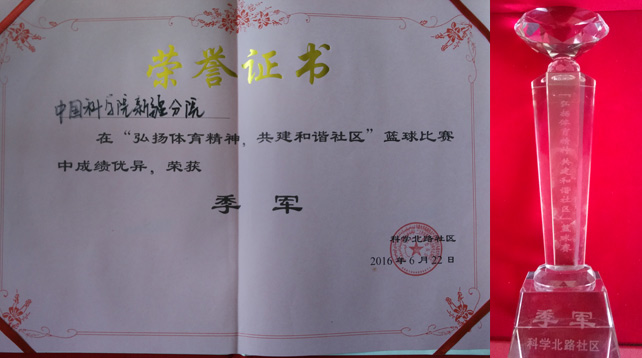 荣誉证书
中国科学院新疆分院
在“弘扬体育精神，共建和谐社区”篮球比赛
中成绩优异，荣获
季军
科学北路社区
2016年6月22日
“弘扬体育精神 共建和谐社区”篮球赛
季军
科学北路社区